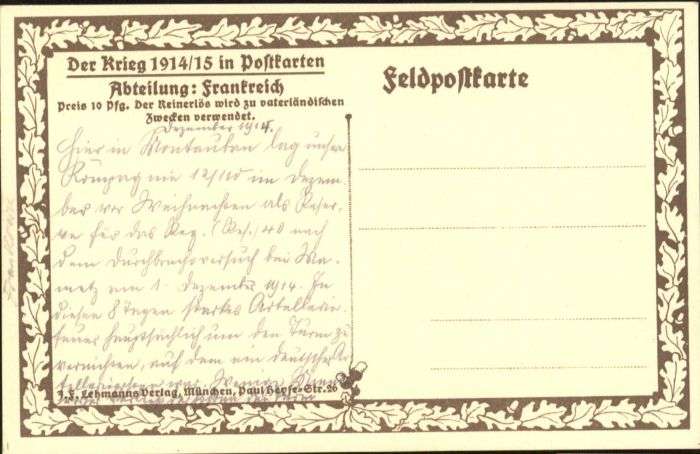 Der Krieg 1914/15 in Postkarten
Abteilung: Frankreich
Preis 10 Pfg. Der Reinerlös wird zu vaterländischen
Zwecken verwendet.
Feldpostkarte
Dezember 1914.
Hier in Montauban lag unsere
Kompagnie 12/110 im Dezem-
ber vor Weihnachten als Reser-
ve für das Reg. (Res.) 40 nach
dem Durchbruchsversuch bei Ma-
metz am 1. Dezember 1914. In
diesen 8 Tagen starkes Artillerie-
feuer hauptsächlich um den Turm zu
vernichten, auf dem ein deutscher Ar-
war. Wenige
J. F. Lehmanns Verlag, München, Paul Heyse-Str. 26